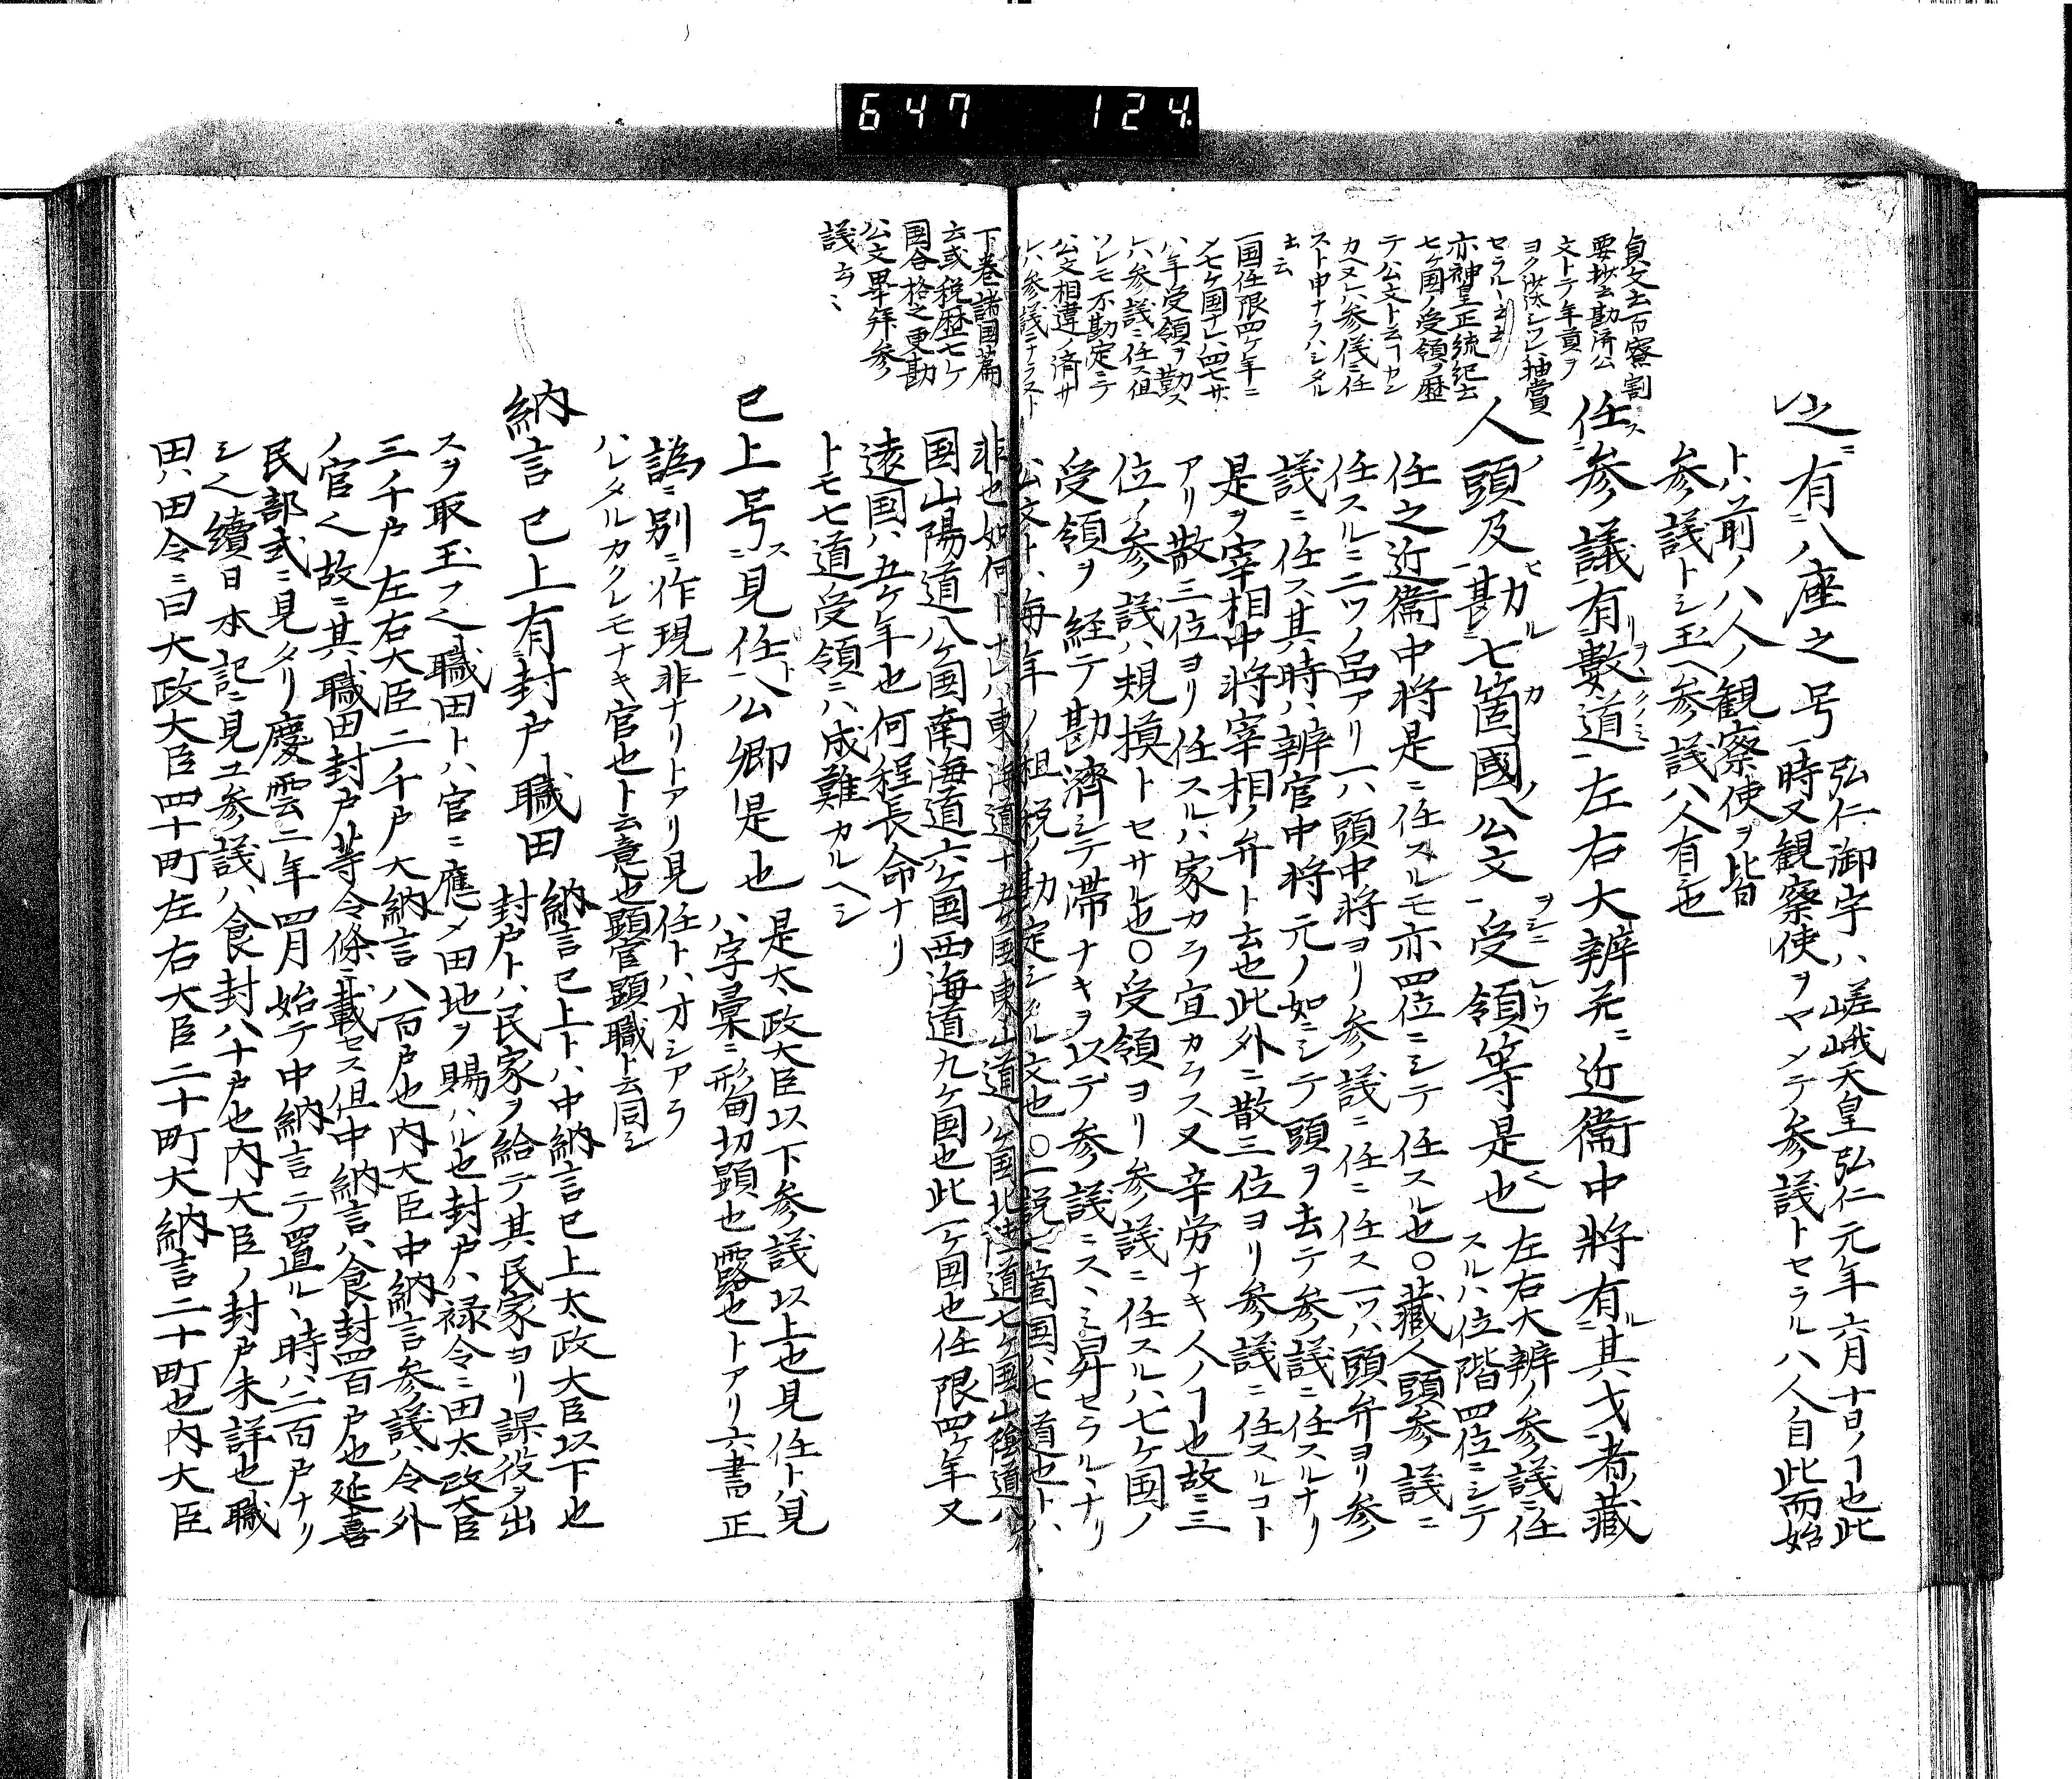 647 124
之ニ有ニ八座之号一
弘仁御宇ハ嵯峨天皇弘仁元年六月十日ノヿ也此
時又観察使ヲヤメテ参議トセラル八人自此而始
トハ前ノ八人ノ観察使ヲ皆
参議トシ玉ヘ参議八人有也
任ニ参議一有ニ数道一左右大辨并ニ近衞中將有ニ其才一者藏
人ノ頭及勘七箇國ノ公文一受領等是也
左右大辨ノ参議ニ任
スルハ位階四位ニシテ
任之近衞中将是ニ任スルモ亦四位ニシテ任スル也〇藏人頭参議ニ
任スルニ二ツノ品アリ一ハ頭中将ヨリ参議ニ任ニ任ス一ツハ頭弁ヨリ参
議ニ任ス其時ハ辨官中将元ノ如ニシテ頭ヲ去テ参議ニ任スルナリ
是ヲ宰相中将宰相ノ弁ト云也此外ニ散三位ヨリ参議ニ任スルコト
アリ散三位ヨリ任スルハ家カラ宜カラス又辛労ナキ人ノヿ也故ニ三
位ノ参議ハ規摸トセサル也〇受領ヨリ参議ニ任スルハ七ケ国ノ
受領ヲ経テ勘濟シテ滞ナキヲ以テ参議ニスヽミ昇セラルヽナリ
公文トハ毎年ノ租税ノ勘定シタル文也〇一説七箇国ハ七道也トハ
貞丈云百寮訓
要抄云勘済公
文トテ年貢ヲ
ヨク沙汰シツレハ抽賞
セラルト云云
亦神皇正統紀云
七ケ国ノ受領ヲ歴
テ公文ト云ヿカン
カヘヌレハ参儀ニ任
スト申ナラハシタル
ト云
一国任限四ケ年ニ
メ七ケ国ナレハ四七廿
八年受領ヲ勤ス
レハ参議ニ任ス但
ソレモ不勘定ニテ
公文相違ノ済サ
レハ参議ニナラスト
下巻諸国篇
云或税歴七ケ
国合格之更勘
公文畢拜参
議云々
非也如何トナレハ東海道十五ケ国東山道八ケ国北陸道七ケ国山陰道八ケ
国山陽道八ケ国南海道六ケ国西海道九ケ国也此一ケ国也任限四ケ年又
遠国ハ五ケ年也何程長命ナリ
トモ七道受領ニハ成難カルヘシ
已上号ニ見任ト公卿一是也
是太政大臣以下参議以上也見任トハ見
ハ字彙ニ形甸切顕也露也トアリ六書正
譌ニ別ニ作現非ナリトアリ見任トハオシアラ
ハレタルカクレモナキ官也ト云意也顕官顕職ト云同シ
納言已上有封戸職田
納言已上トハ中納言已上太政大臣以下也
封戸トハ民家ヲ給テ其民家ヨリ課役ヲ出
スヲ取玉フ也職田トハ官ニ應メ田地ヲ賜ハル也封戸ハ禄令ニ曰太政大臣
三千戸左右大臣二千戸大納言八百戸也内大臣中納言参議ハ令外
ノ官也故ニ其職田封戸等令條ニ載セス但中納言ハ食封四百戸也延喜
民部式ニ見タリ慶雲二年四月始テ中納言テ置ルヽ時ハ二百戸ナリ
シ也續日本記ニ見ユ参議ハ食封八十戸也内大臣ノ封戸未詳也職
田ハ田令ニ曰大政大臣四十町左右大臣二十町大納言二十町也内大臣